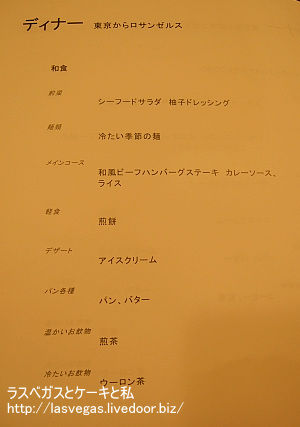 ディナー 東京からロサンゼルス
和食
前菜
シーフードサラダ 柚子ドレッシング
麺類
冷たい季節の麺
メインコース
和風ビーフハンバーグステーキ カレーソース、
ライス
軽食
煎餅
デザート
アイスクリーム
パン各種
パン、バター
温かいお飲物
煎茶
冷たいお飲物
ウーロン茶
ラスベガスとケーキと私
http://lasvegas.livedoor.biz/